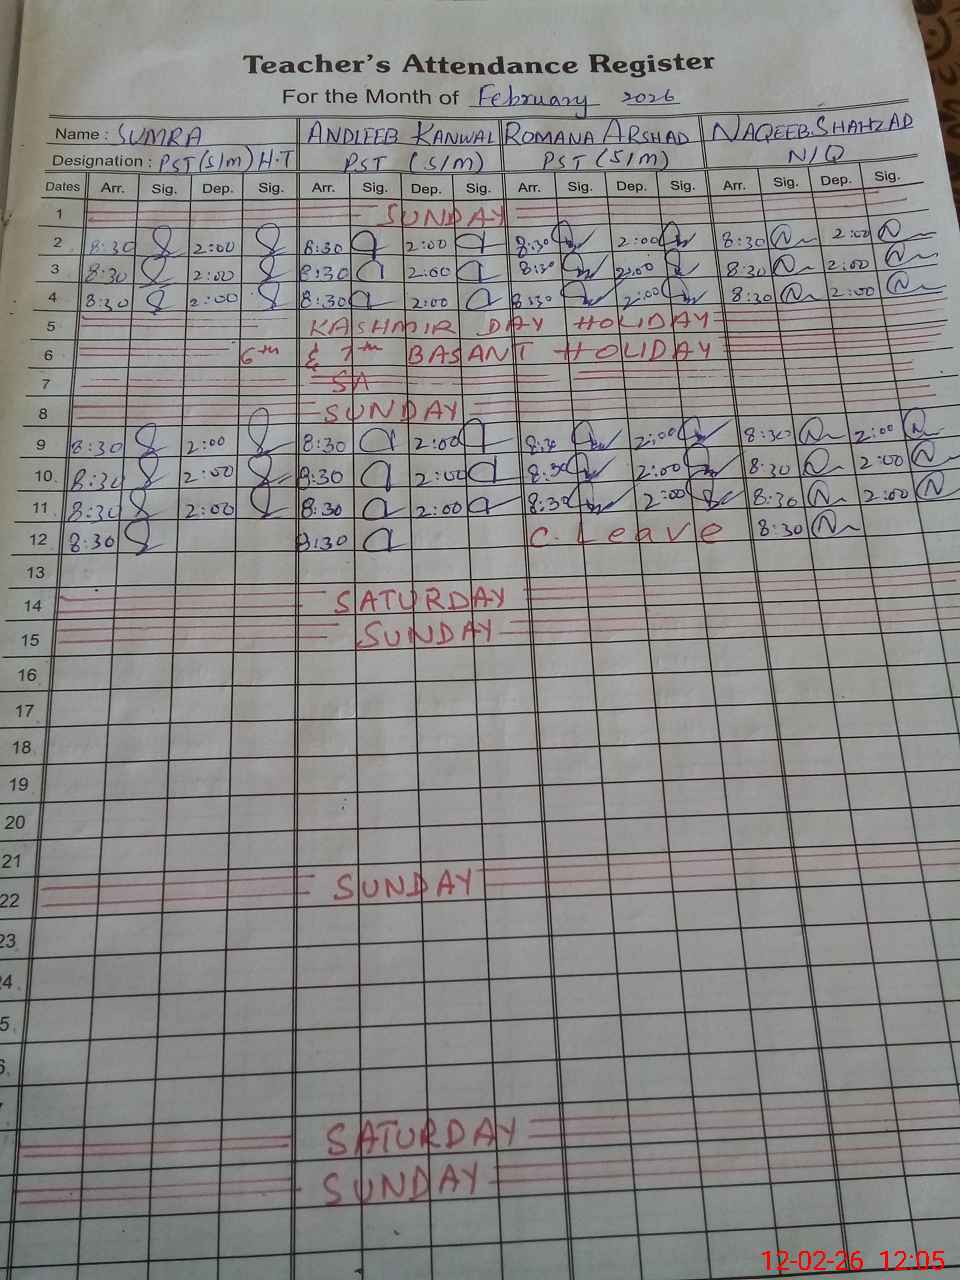 Teacher's Attendance Register
For the Month of February 2026
Name : SUMRA ANDLEEB KANWAL ROMANA ARSHAD NAQEEB.SHAHZAD
Designation : PST(S/m) H.T PST (S/m) PST (S/m) N/Q
Dates Arr. Sig. Dep. Sig. Arr. Sig. Dep. Sig. Arr. Sig. Dep. Sig. Arr. Sig. Dep. Sig.
1 SUNDAY
2 8:30 2:00 8:30 2:00 8:30 2:00 8:30 2:00
3 8:30 2:00 8:30 2:00 8:30 2:00 8:30 2:00
4 8:30 2:00 8:30 2:00 8:30 2:00 8:30 2:00
5 KASHMIR DAY HOLIDAY
6 6th & 7th BASANT HOLIDAY
7 SA
8 SUNDAY
9 8:30 2:00 8:30 2:00 8:30 2:00 8:30 2:00
10. 8:30 2:00 8:30 2:00 8:30 2:00 8:30 2:00
11 8:30 2:00 8:30 2:00 8:30 2:00 8:30 2:00
12 8:30 8:30 C. Leave 8:30
13
14 SATURDAY
15 SUNDAY
16
17
18
19
20
21
22 SUNDAY
23
4
5
6
SATURDAY
SUNDAY
12-02-26 12:05